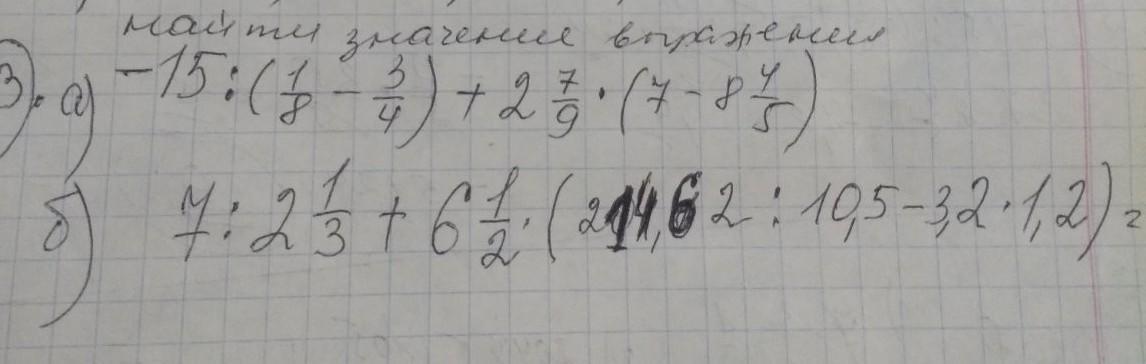 найти значение выражения
3). а) -15 : (1/8 - 3/4) + 2 7/9 · (7 - 8 4/5)
б) 7 : 2 1/3 + 6 1/2 · (214,62 : 10,5 - 3,2 · 1,2) =